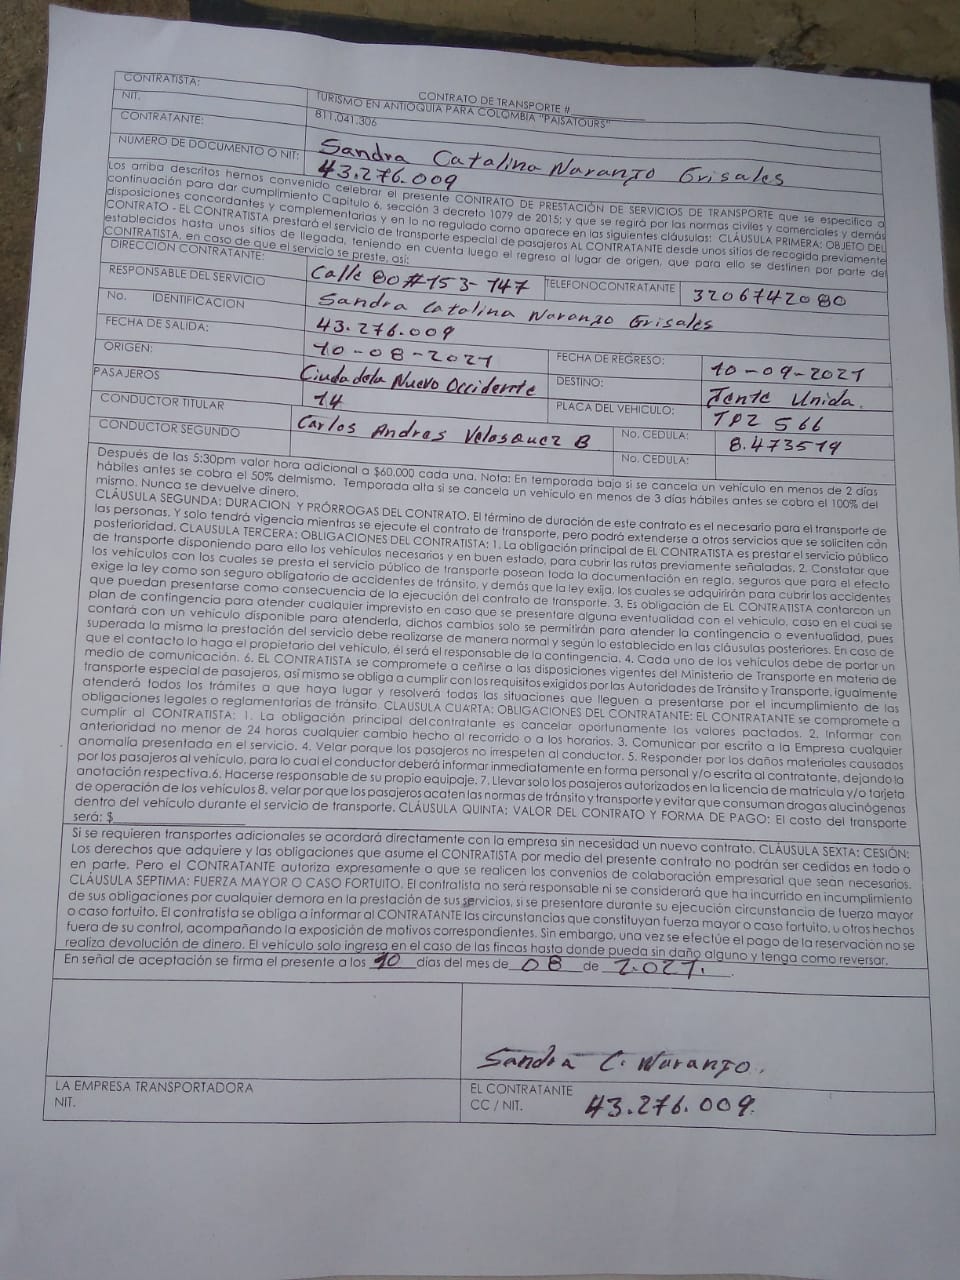 CONTRATO DE TRANSPORTE #
CONTRATISTA: TURISMO EN ANTIOQUIA PARA COLOMBIA "PAISATOURS"
NIT. 811.041.306
CONTRATANTE: Sandra Catalina Naranjo Grisales
NUMERO DE DOCUMENTO O NIT: 43.276.009
Los arriba descritos hemos convenido celebrar el presente CONTRATO DE PRESTACIÓN DE SERVICIOS DE TRANSPORTE que se especifica a
continuación para dar cumplimiento Capitulo 6, sección 3 decreto 1079 de 2015; y que se regirá por las normas civiles y comerciales y demás
disposiciones concordantes y complementarias y en lo no regulado como aparece en las siguientes cláusulas: CLÁUSULA PRIMERA: OBJETO DEL
CONTRATO - EL CONTRATISTA prestará el servicio de transporte especial de pasajeros AL CONTRATANTE desde unos sitios de recogida previamente
establecidos hasta unos sitios de llegada, teniendo en cuenta luego el regreso al lugar de origen, que para ello se destinen por parte del
CONTRATISTA, en caso de que el servicio se preste, así:
DIRECCION CONTRATANTE: Calle 80 #153-147 TELEFONOCONTRATANTE 3206742080
RESPONSABLE DEL SERVICIO Sandra Catalina Naranjo Grisales
No. IDENTIFICACION 43.276.009
FECHA DE SALIDA: 10-08-2021 FECHA DE REGRESO: 10-09-2021
ORIGEN: Ciudadela Nuevo Occidente DESTINO: Tente Unida.
PASAJEROS 14 PLACA DEL VEHICULO: TPZ 566
CONDUCTOR TITULAR Carlos Andres Velasquez B No. CEDULA: 8.473519
CONDUCTOR SEGUNDO No. CEDULA:
Después de las 5:30pm valor hora adicional a $60.000 cada una. Nota: En temporada baja si se cancela un vehículo en menos de 2 días
hábiles antes se cobra el 50% delmismo. Temporada alta si se cancela un vehículo en menos de 3 días hábiles antes se cobra el 100% del
mismo. Nunca se devuelve dinero.
CLÁUSULA SEGUNDA: DURACION Y PRÓRROGAS DEL CONTRATO. El término de duración de este contrato es el necesario para el transporte de
las personas. Y solo tendrá vigencia mientras se ejecute el contrato de transporte, pero podrá extenderse a otros servicios que se soliciten con
posterioridad. CLAUSULA TERCERA: OBLIGACIONES DEL CONTRATISTA: 1. La obligación principal de EL CONTRATISTA es prestar el servicio público
de transporte disponiendo para ello los vehículos necesarios y en buen estado, para cubrir las rutas previamente señaladas. 2. Constatar que
los vehículos con los cuales se presta el servicio público de transporte posean toda la documentación en regla, seguros que para el efecto
exige la ley como son seguro obligatorio de accidentes de tránsito, y demás que la ley exija, los cuales se adquirirán para cubrir los accidentes
que puedan presentarse como consecuencia de la ejecución del contrato de transporte. 3. Es obligación de EL CONTRATISTA contarcon un
plan de contingencia para atender cualquier imprevisto en caso que se presentare alguna eventualidad con el vehículo, caso en el cual se
contará con un vehículo disponible para atenderla, dichos cambios solo se permitirán para atender la contingencia o eventualidad, pues
superada la misma la prestación del servicio debe realizarse de manera normal y según lo establecido en las cláusulas posteriores. En caso de
que el contacto lo haga el propietario del vehículo, él será el responsable de la contingencia. 4. Cada uno de los vehículos debe de portar un
medio de comunicación. 6. EL CONTRATISTA se compromete a ceñirse a las disposiciones vigentes del Ministerio de Transporte en materia de
transporte especial de pasajeros, así mismo se obliga a cumplir con los requisitos exigidos por las Autoridades de Tránsito y Transporte, igualmente
atenderá todos los trámites a que haya lugar y resolverá todas las situaciones que lleguen a presentarse por el incumplimiento de las
obligaciones legales o reglamentarias de tránsito. CLAUSULA CUARTA: OBLIGACIONES DEL CONTRATANTE: EL CONTRATANTE se compromete a
cumplir al CONTRATISTA: 1. La obligación principal delcontratante es cancelar oportunamente los valores pactados. 2. Informar con
anterioridad no menor de 24 horas cualquier cambio hecho al recorrido o a los horarios. 3. Comunicar por escrito a la Empresa cualquier
anomalía presentada en el servicio. 4. Velar porque los pasajeros no irrespeten al conductor. 5. Responder por los daños materiales causados
por los pasajeros al vehículo, para lo cual el conductor deberá informar inmediatamente en forma personal y/o escrita al contratante, dejando la
anotación respectiva.6. Hacerse responsable de su propio equipaje. 7. Llevar solo los pasajeros autorizados en la licencia de matricula y/o tarjeta
de operación de los vehículos 8. velar por que los pasajeros acaten las normas de tránsito y transporte y evitar que consuman drogas alucinógenas
dentro del vehículo durante el servicio de transporte. CLÁUSULA QUINTA: VALOR DEL CONTRATO Y FORMA DE PAGO: El costo del transporte
será: $
Si se requieren transportes adicionales se acordará directamente con la empresa sin necesidad un nuevo contrato. CLÁUSULA SEXTA: CESIÓN:
Los derechos que adquiere y las obligaciones que asume el CONTRATISTA por medio del presente contrato no podrán ser cedidas en todo o
en parte. Pero el CONTRATANTE autoriza expresamente a que se realicen los convenios de colaboración empresarial que sean necesarios.
CLÁUSULA SEPTIMA: FUERZA MAYOR O CASO FORTUITO. El contratista no será responsable ni se considerará que ha incurrido en incumplimiento
de sus obligaciones por cualquier demora en la prestación de sus servicios, si se presentare durante su ejecución circunstancia de fuerza mayor
o caso fortuito. El contratista se obliga a informar al CONTRATANTE las circunstancias que constituyan fuerza mayor o caso fortuito, u otros hechos
fuera de su control, acompañando la exposición de motivos correspondientes. Sin embargo, una vez se efectúe el pago de la reservación no se
realiza devolución de dinero. El vehículo solo ingresa en el caso de las fincas hasta donde pueda sin daño alguno y tenga como reversar.
En señal de aceptación se firma el presente a los 10 días del mes de 08 de 2.021.
Sandra C. Naranjo.
LA EMPRESA TRANSPORTADORA EL CONTRATANTE
NIT. CC / NIT. 43.276.009.